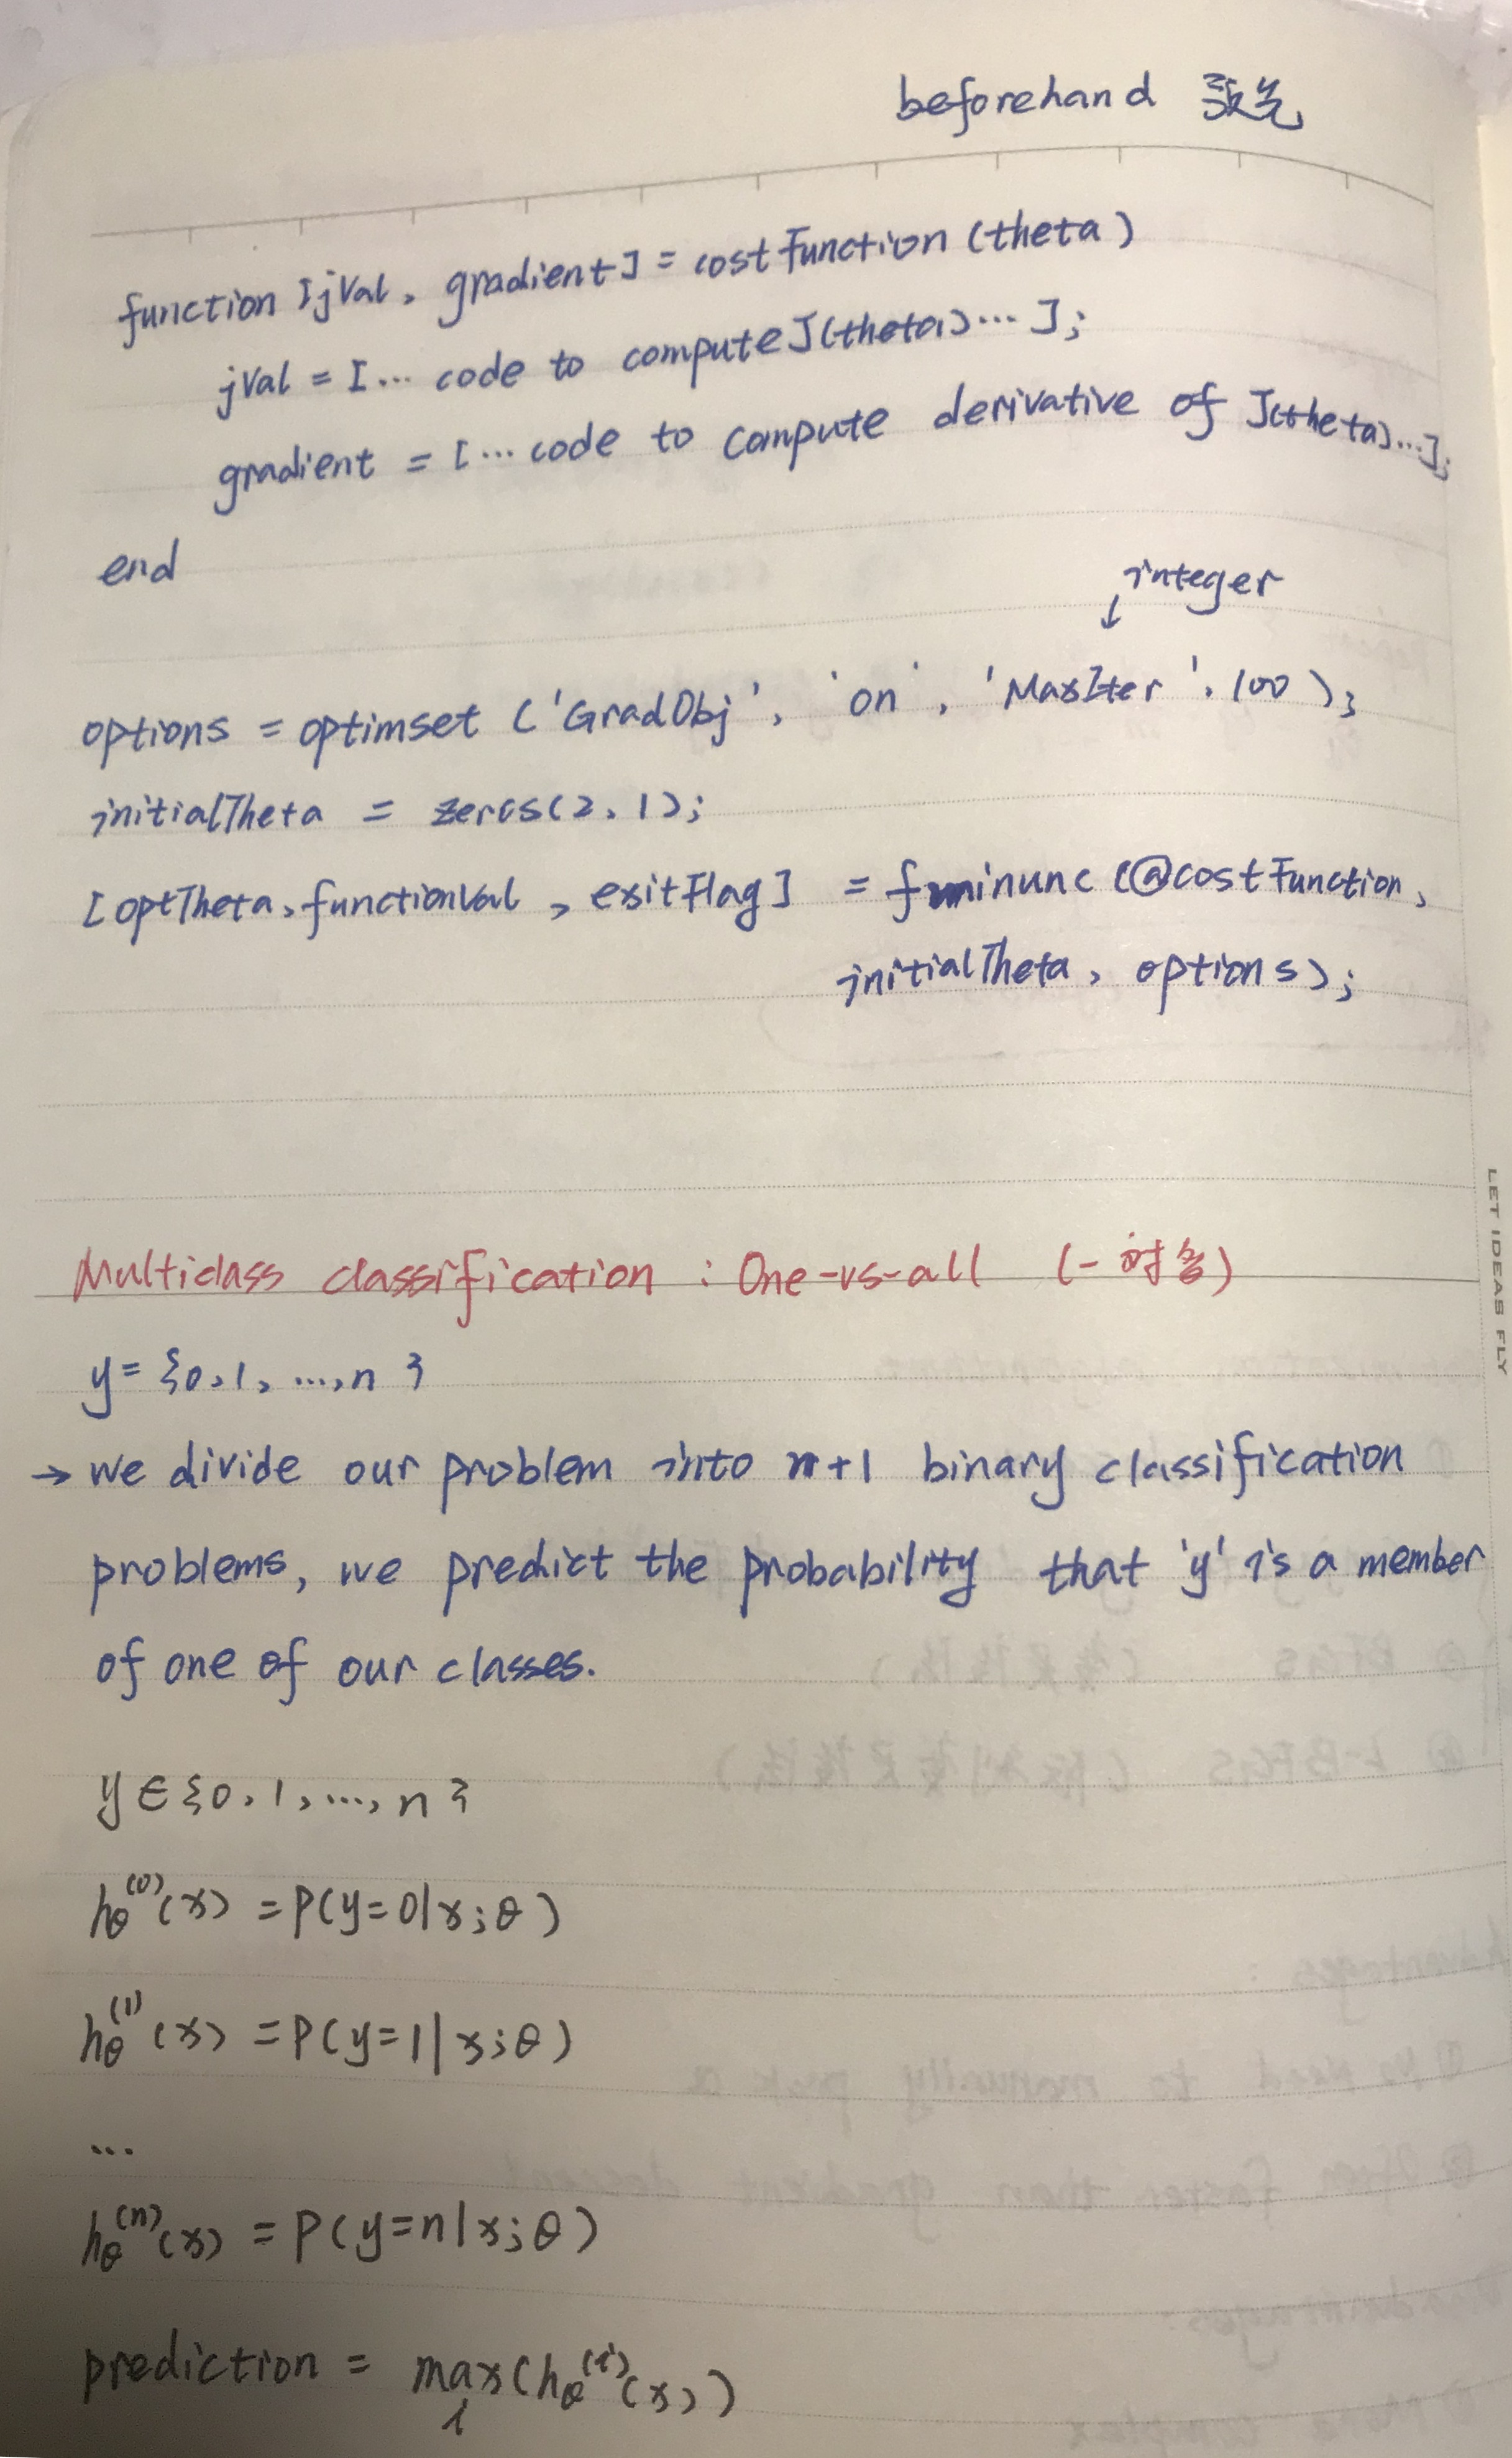 beforehand 预先
function [jVal, gradient] = costFunction (theta)
jVal = [... code to compute J(theta)...];
gradient = [... code to compute derivative of J(theta)...];
end
integer
↓
options = optimset ('GradObj', 'on', 'MaxIter', 100);
initialTheta = zeros(2,1);
[optTheta, functionVal, exitFlag] = fminunc (@costFunction,
initialTheta, options);
Multiclass classification : One-vs-all (一对多)
y = {0, 1, ..., n}
→ we divide our problem into n+1 binary classification
problems, we predict the probability that 'y' is a member
of one of our classes.
y ∈ {0, 1, ..., n}
hθ^(0)(x) = P(y=0|x;θ)
hθ^(1)(x) = P(y=1|x;θ)
...
hθ^(n)(x) = P(y=n|x;θ)
prediction = max(hθ^(i)(x))
i
LET IDEAS FLY